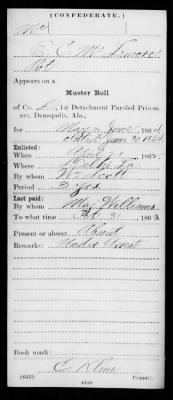 (CONFEDERATE.)
Mc
E. C. Mc
Appears on a
Muster Roll
of Co. 1st Detachment Paroled Prison-
ers, Demopolis, Ala.,
for May & June 1864
dated June 30 1864
Enlisted:
When 1862
Where
By whom Wm Scott
Period 3 yrs
Last paid:
By whom Maj Williams
To what time Oct 31 1863
Present or absent Absent
Remarks: Under Arrest
Book mark:
C. Kline
(642) Copyist.